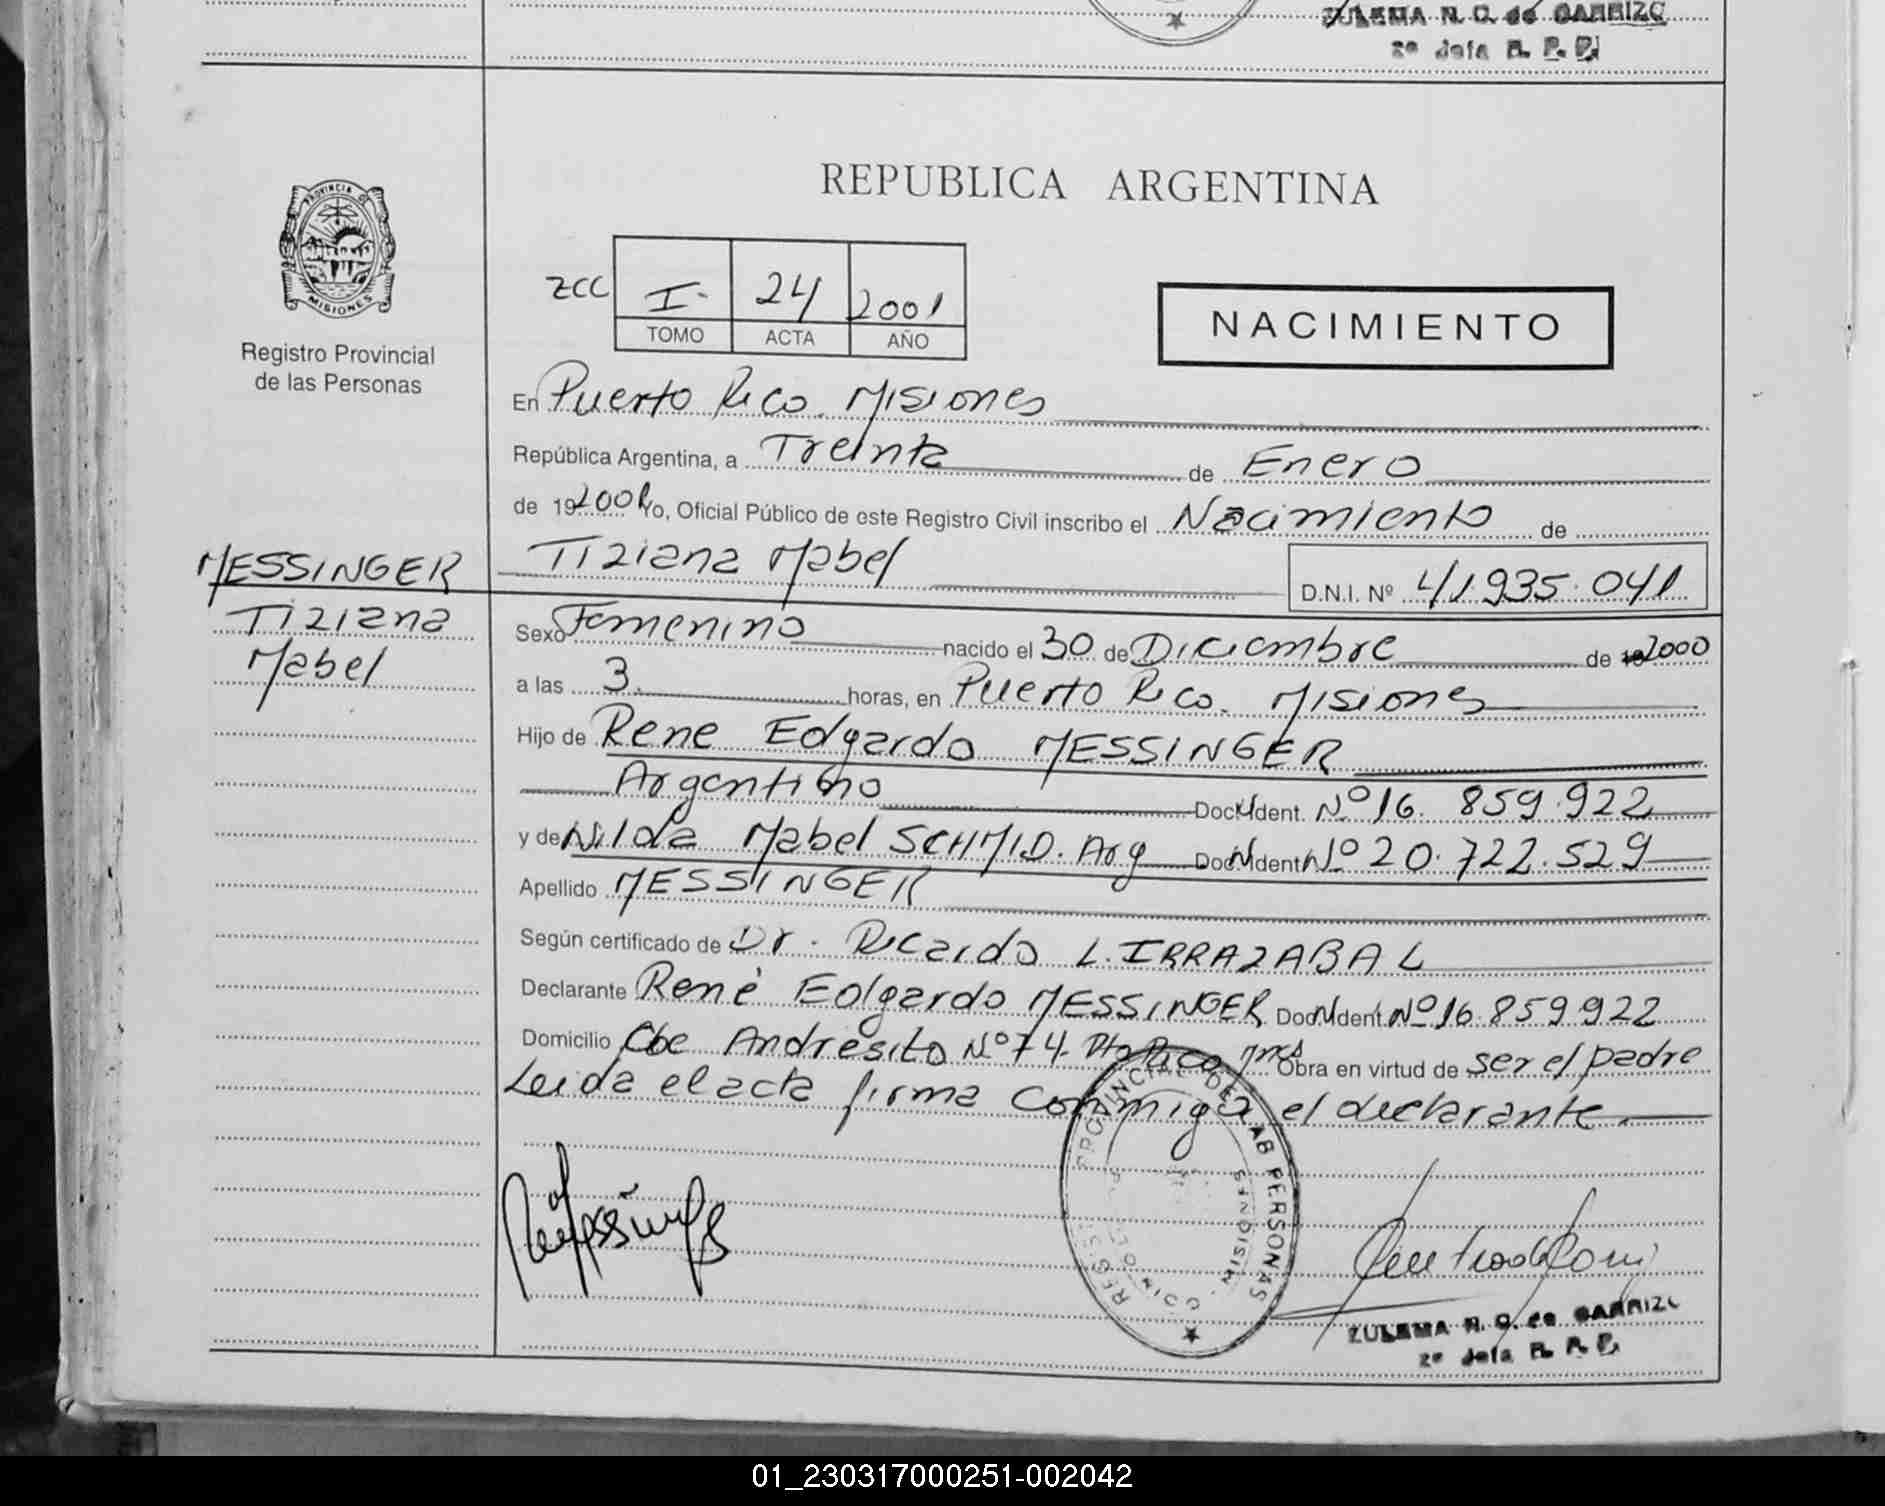 ZULEMA N. C. de CARRIZO
2º Jefa R. P. P.
PROVINCIA DE
MISIONES
Registro Provincial
de las Personas
REPUBLICA ARGENTINA
ZCC I- 24 2001
TOMO ACTA AÑO
NACIMIENTO
En Puerto Rico. Misiones
República Argentina, a Treinta de Enero
de 192001 Yo, Oficial Público de este Registro Civil inscribo el Nacimiento de
MESSINGER
Tiziana Mabel
D.N.I. Nº 41.935.041
Tiziana
Mabel
Sexo Femenino nacido el 30 de Diciembre de 2000
a las 3. horas, en Puerto Rico. Misiones
Hijo de Rene Edgardo MESSINGER
Argentino Doc. Ident. Nº 16. 859.922
y de Nilda Mabel SCHMID. Arg Doc. Ident. Nº 20.722.529
Apellido MESSINGER
Según certificado de Dr. Ricardo L. IRRAZABAL
Declarante René Edgardo MESSINGER Doc. Ident. Nº 16.859.922
Domicilio Cbe Andresito Nº 74. Pto Rico. Mnes Obra en virtud de ser el padre
Leida el acta firma conmigo el declarante.
REGISTRO PROVINCIAL DE LAS PERSONAS
MISIONES
ZULEMA N. C. de CARRIZO
2º Jefa R. P. P.
01_230317000251-002042